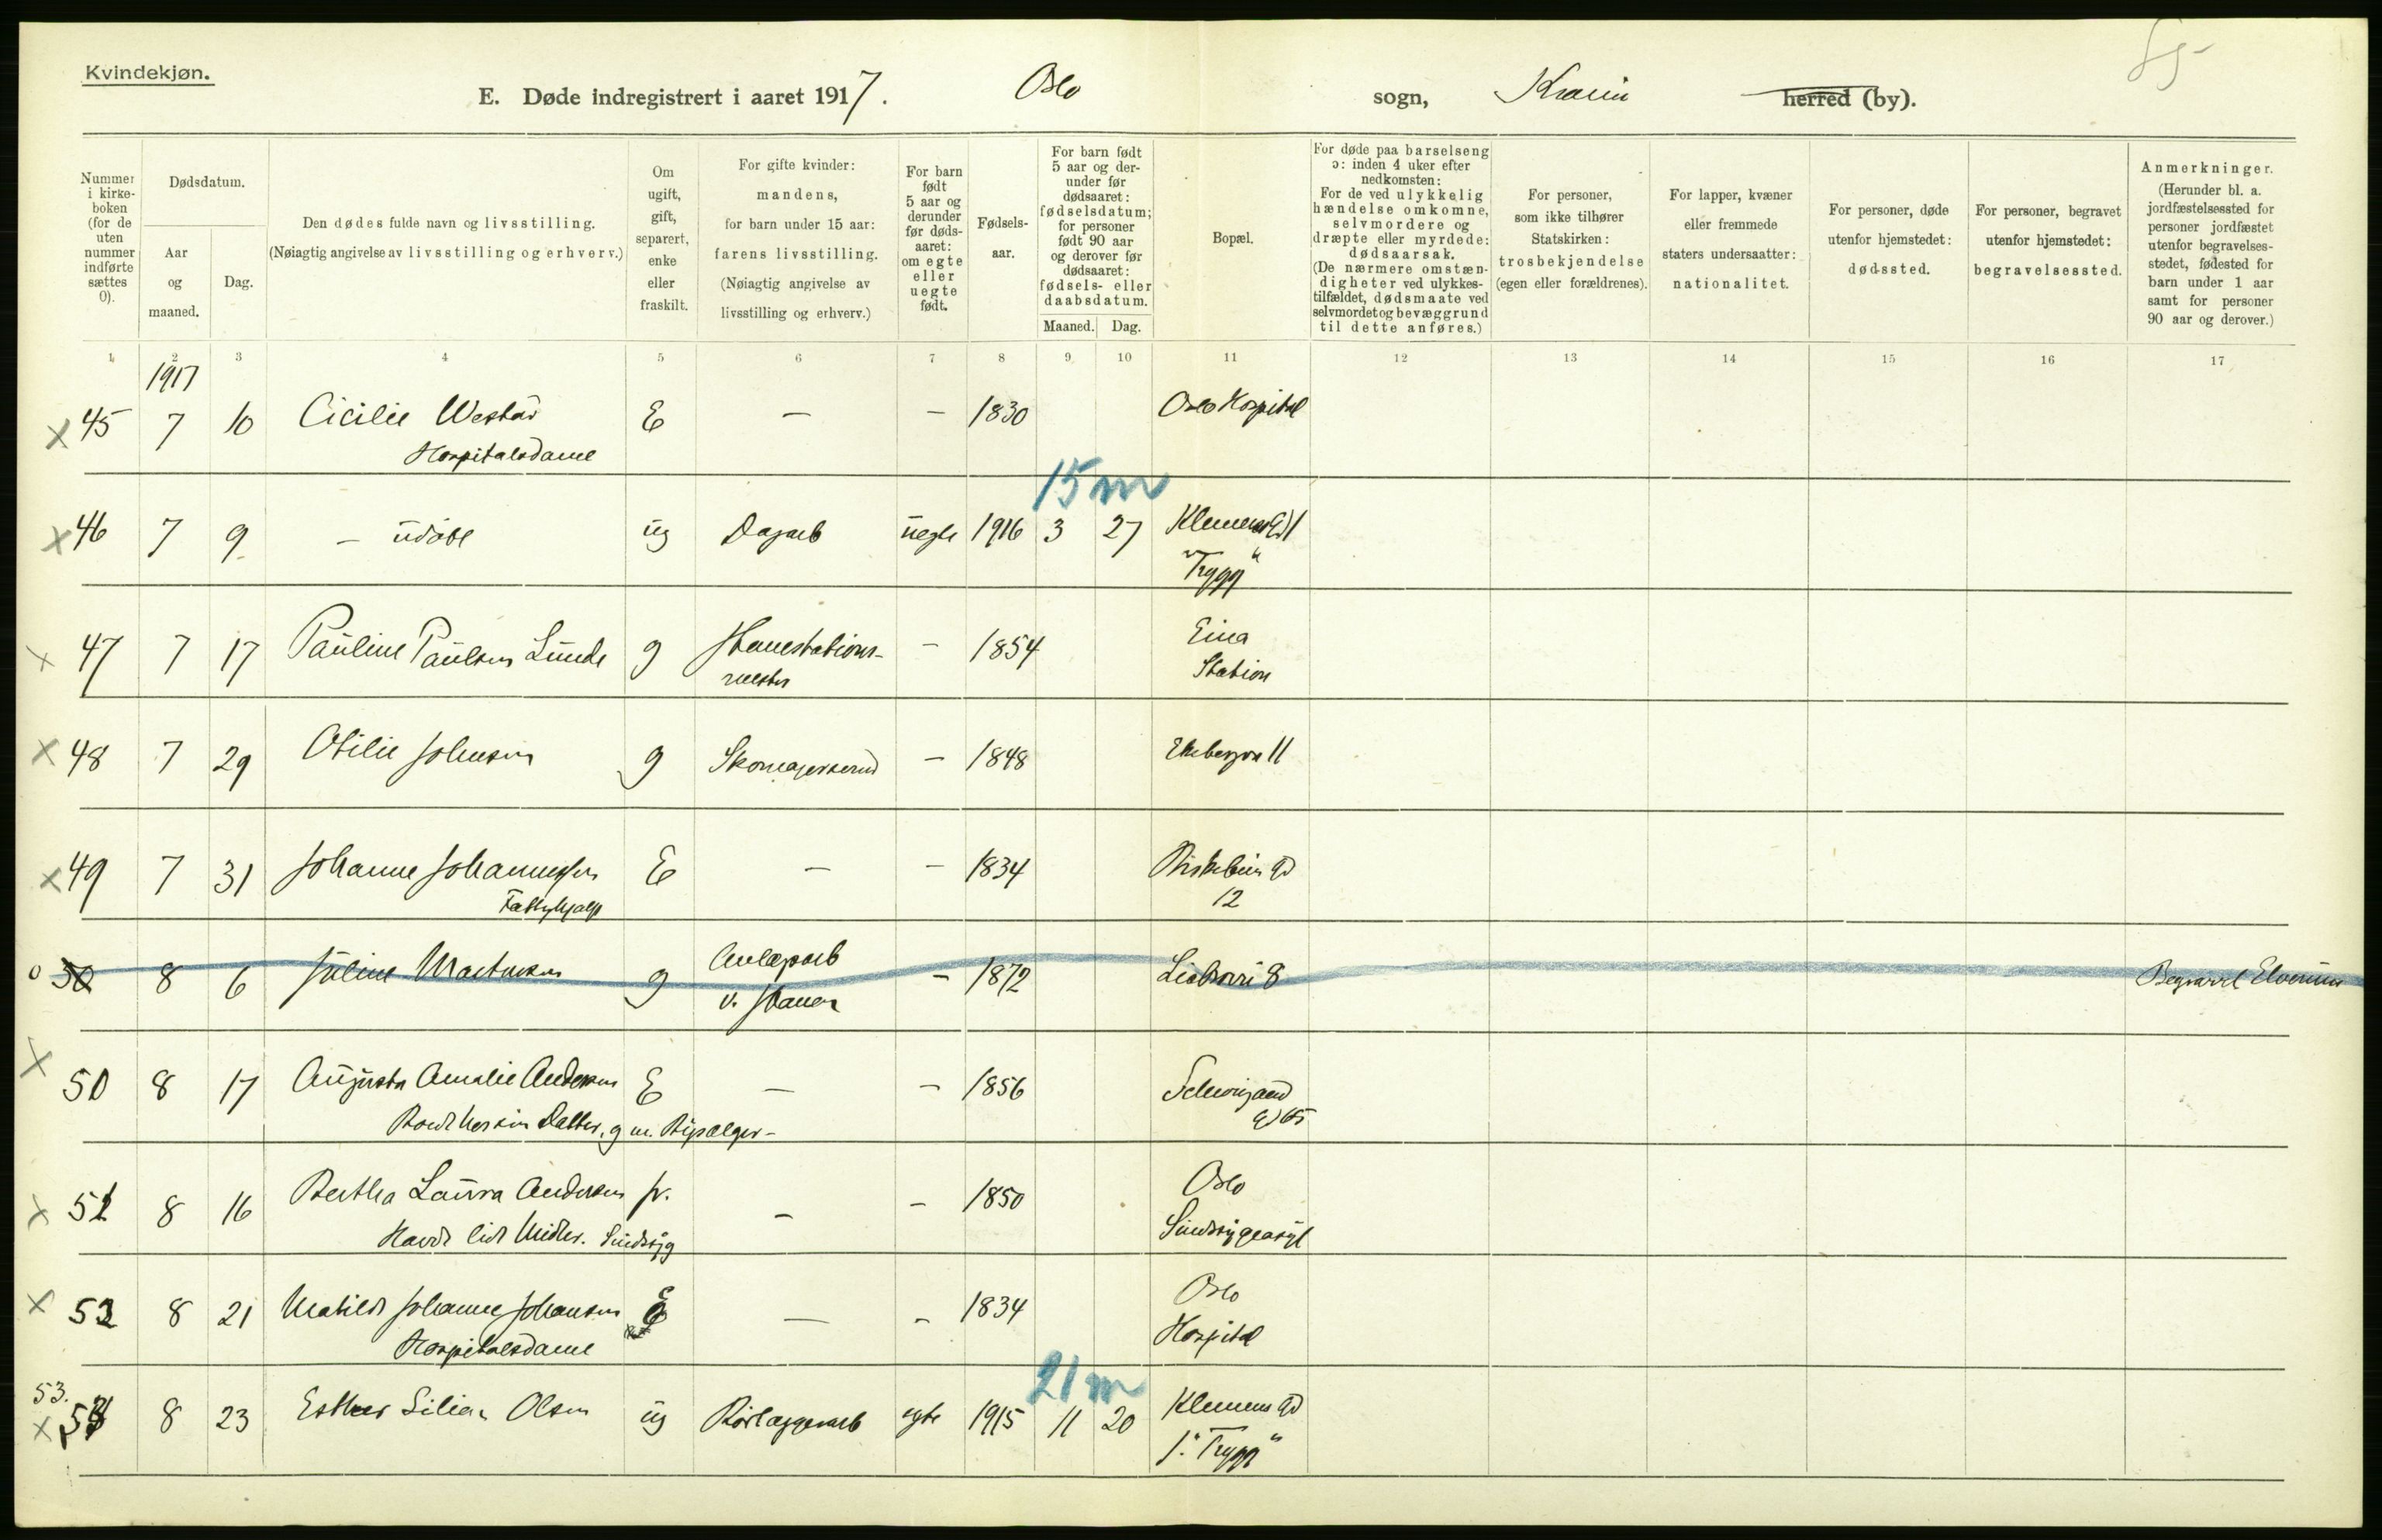 Kvindekjøn.
E. Døde indregistrert i aaret 1917. Oslo sogn, Kraniii herred (by).
Nummer i kirke-boken (for de uten nummer indførte sættes 0).
Dødsdatum.
Aar og maaned.
Dag.
Den dødes fulde navn og livsstilling.
(Nøiagtig angivelse av livsstilling og erhverv.)
Om ugift, gift, separert, enke eller fraskilt.
For gifte kvinder: mandens, for barn under 15 aar: farens livsstilling. (Nøiagtig angivelse av livsstilling og erhverv.)
For barn født 5 aar og derunder før døds-aaret: om egte eller uegte født.
Fødsels-aar.
For barn født 5 aar og der-under før dødsaaret: fødselsdatum; for personer født 90 aar og derover før dødsaaret: fødsels- eller daabsdatum.
Maaned. Dag.
Bopæl.
For døde paa barselseng ɔ: inden 4 uker efter nedkomsten: For de ved ulykkelig hændelse omkomne, selvmordere og dræpte eller myrdede: dødsaarsak. (De nærmere omstæn-digheter ved ulykkes-tilfældet, dødsmaate ved selvmordet og bevæggrund til dette anføres.)
For personer, som ikke tilhører Statskirken: trosbekjendelse (egen eller forældrenes).
For lapper, kvæner eller fremmede staters undersaatter: nationalitet.
For personer, døde utenfor hjemstedet: dødssted.
For personer, begravet utenfor hjemstedet: begravelsessted.
Anmerkninger. (Herunder bl. a. jordfæstelsessted for personer jordfæstet utenfor begravelses-stedet, fødested for barn under 1 aar samt for personer 90 aar og derover.)
1 2 3 4 5 6 7 8 9 10 11 12 13 14 15 16 17
1917
x 45 7 10 Cicilie Westad E — — 1830 Oslo Hospital
Hospitalsdame
15 m
x 46 7 9 — udøbt ug Dagarb uegte 1916 3 27 Klemens Gd 1
"Trygg"
x 47 7 17 Pauline Paulsen Lunde g Banestations- — 1854 Eina
mester Station
x 48 7 29 Otilie Johnsen g Skomagersvend — 1848 Ekebergvn 11
x 49 7 31 Johanne Johannessen E — — 1834 Biskebins Gd
Fattighjælp 12
0 50 8 6 Juline Martinsen g Anlægsarb — 1872 Liabrovei 8 Begravet Elverum
v. Banen
x 50 8 17 Augusta Amalie Andersen E — — 1856 Schweigaard
Datter, g m. Gd 65
x 51 8 16 Bertha Laura Andersen fr. — — 1850 Oslo
Havde lidt Midler. Sindssyg Sindssygeasyl
x 52 8 21 Matilde Johanne Johansen E — — 1834 Oslo
Hospitalsdame Hospital
21 m
53.
x 8 23 Esther Lilian Olsen ug Rørlæggerarb egte 1915 11 20 Klemens Gd
1. "Trygg"